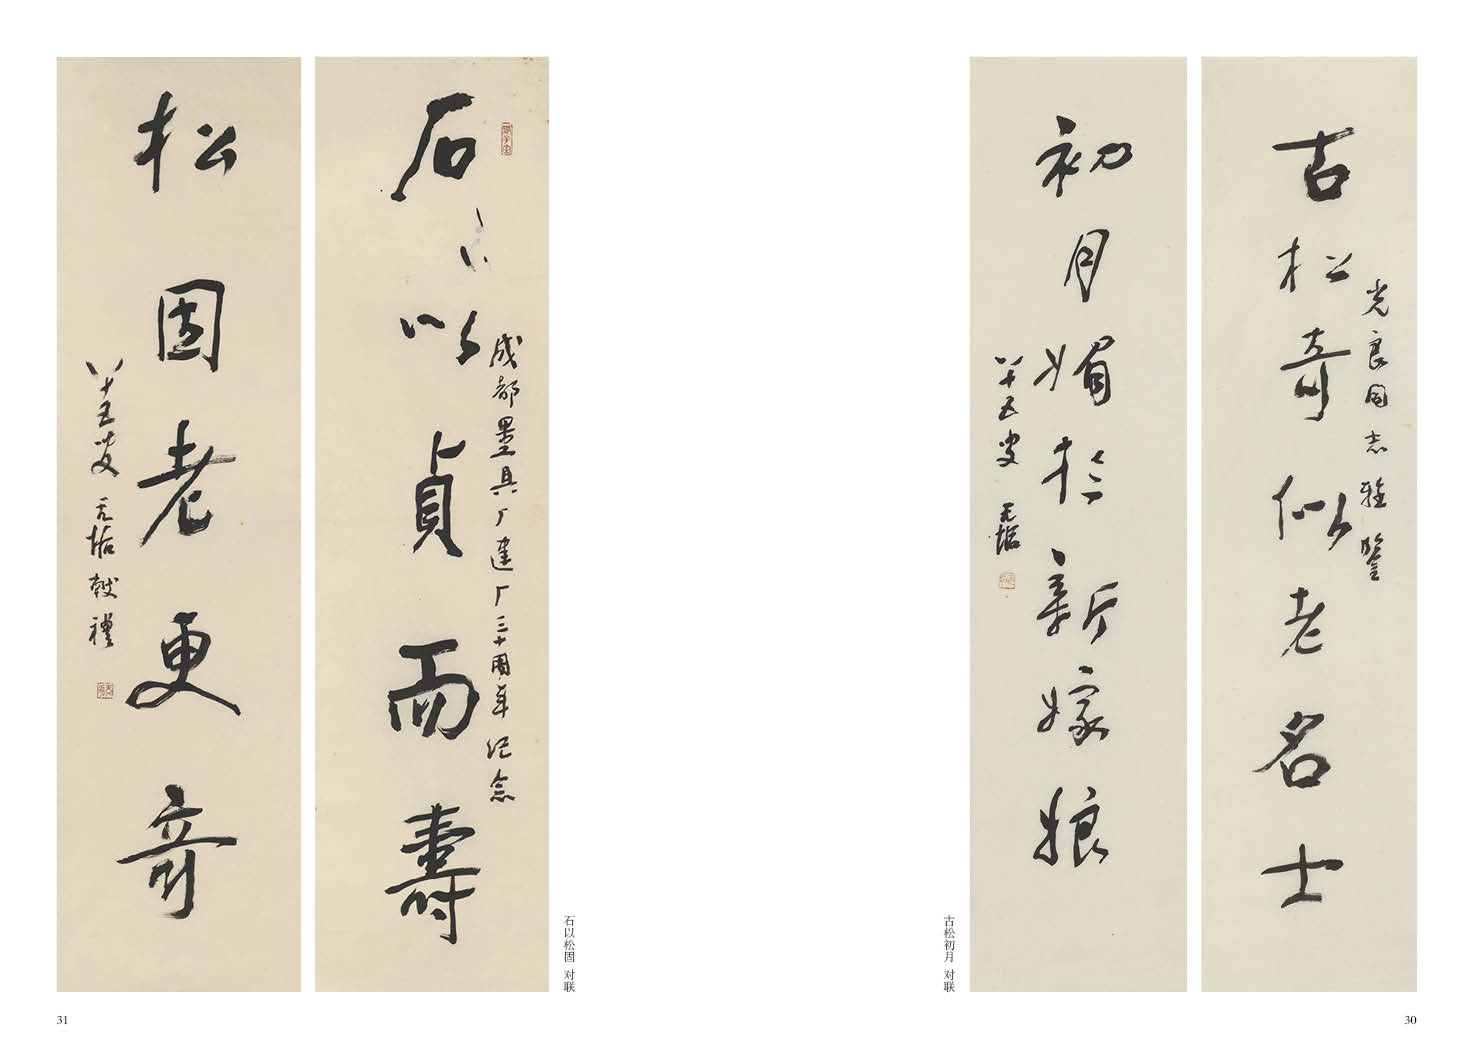 古松奇似老名士
光良同志雅鑒
初月媚於新嫁娘
八十五叟无垢
古松初月 对联
30
石以貞而壽
成都墨具厂建厂三十周年纪念
松固老更奇
八十五叟无垢献禮
石以松固 对联
31